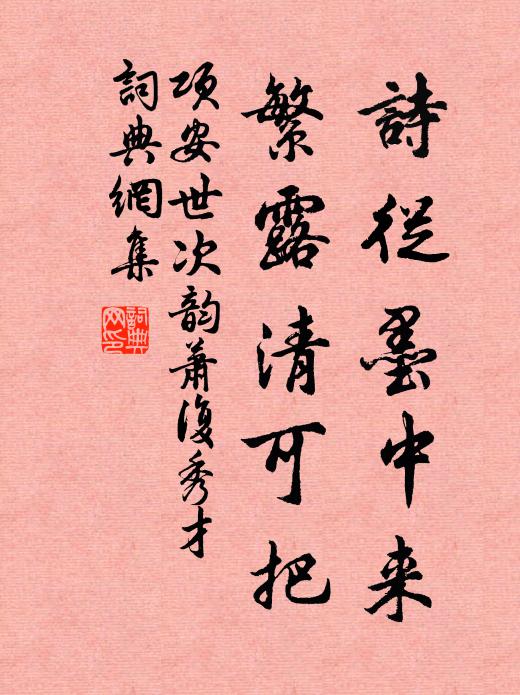 詩從墨中来
繁露清可把
項安世次韵蕭復秀才
詞典網集
詞典网印